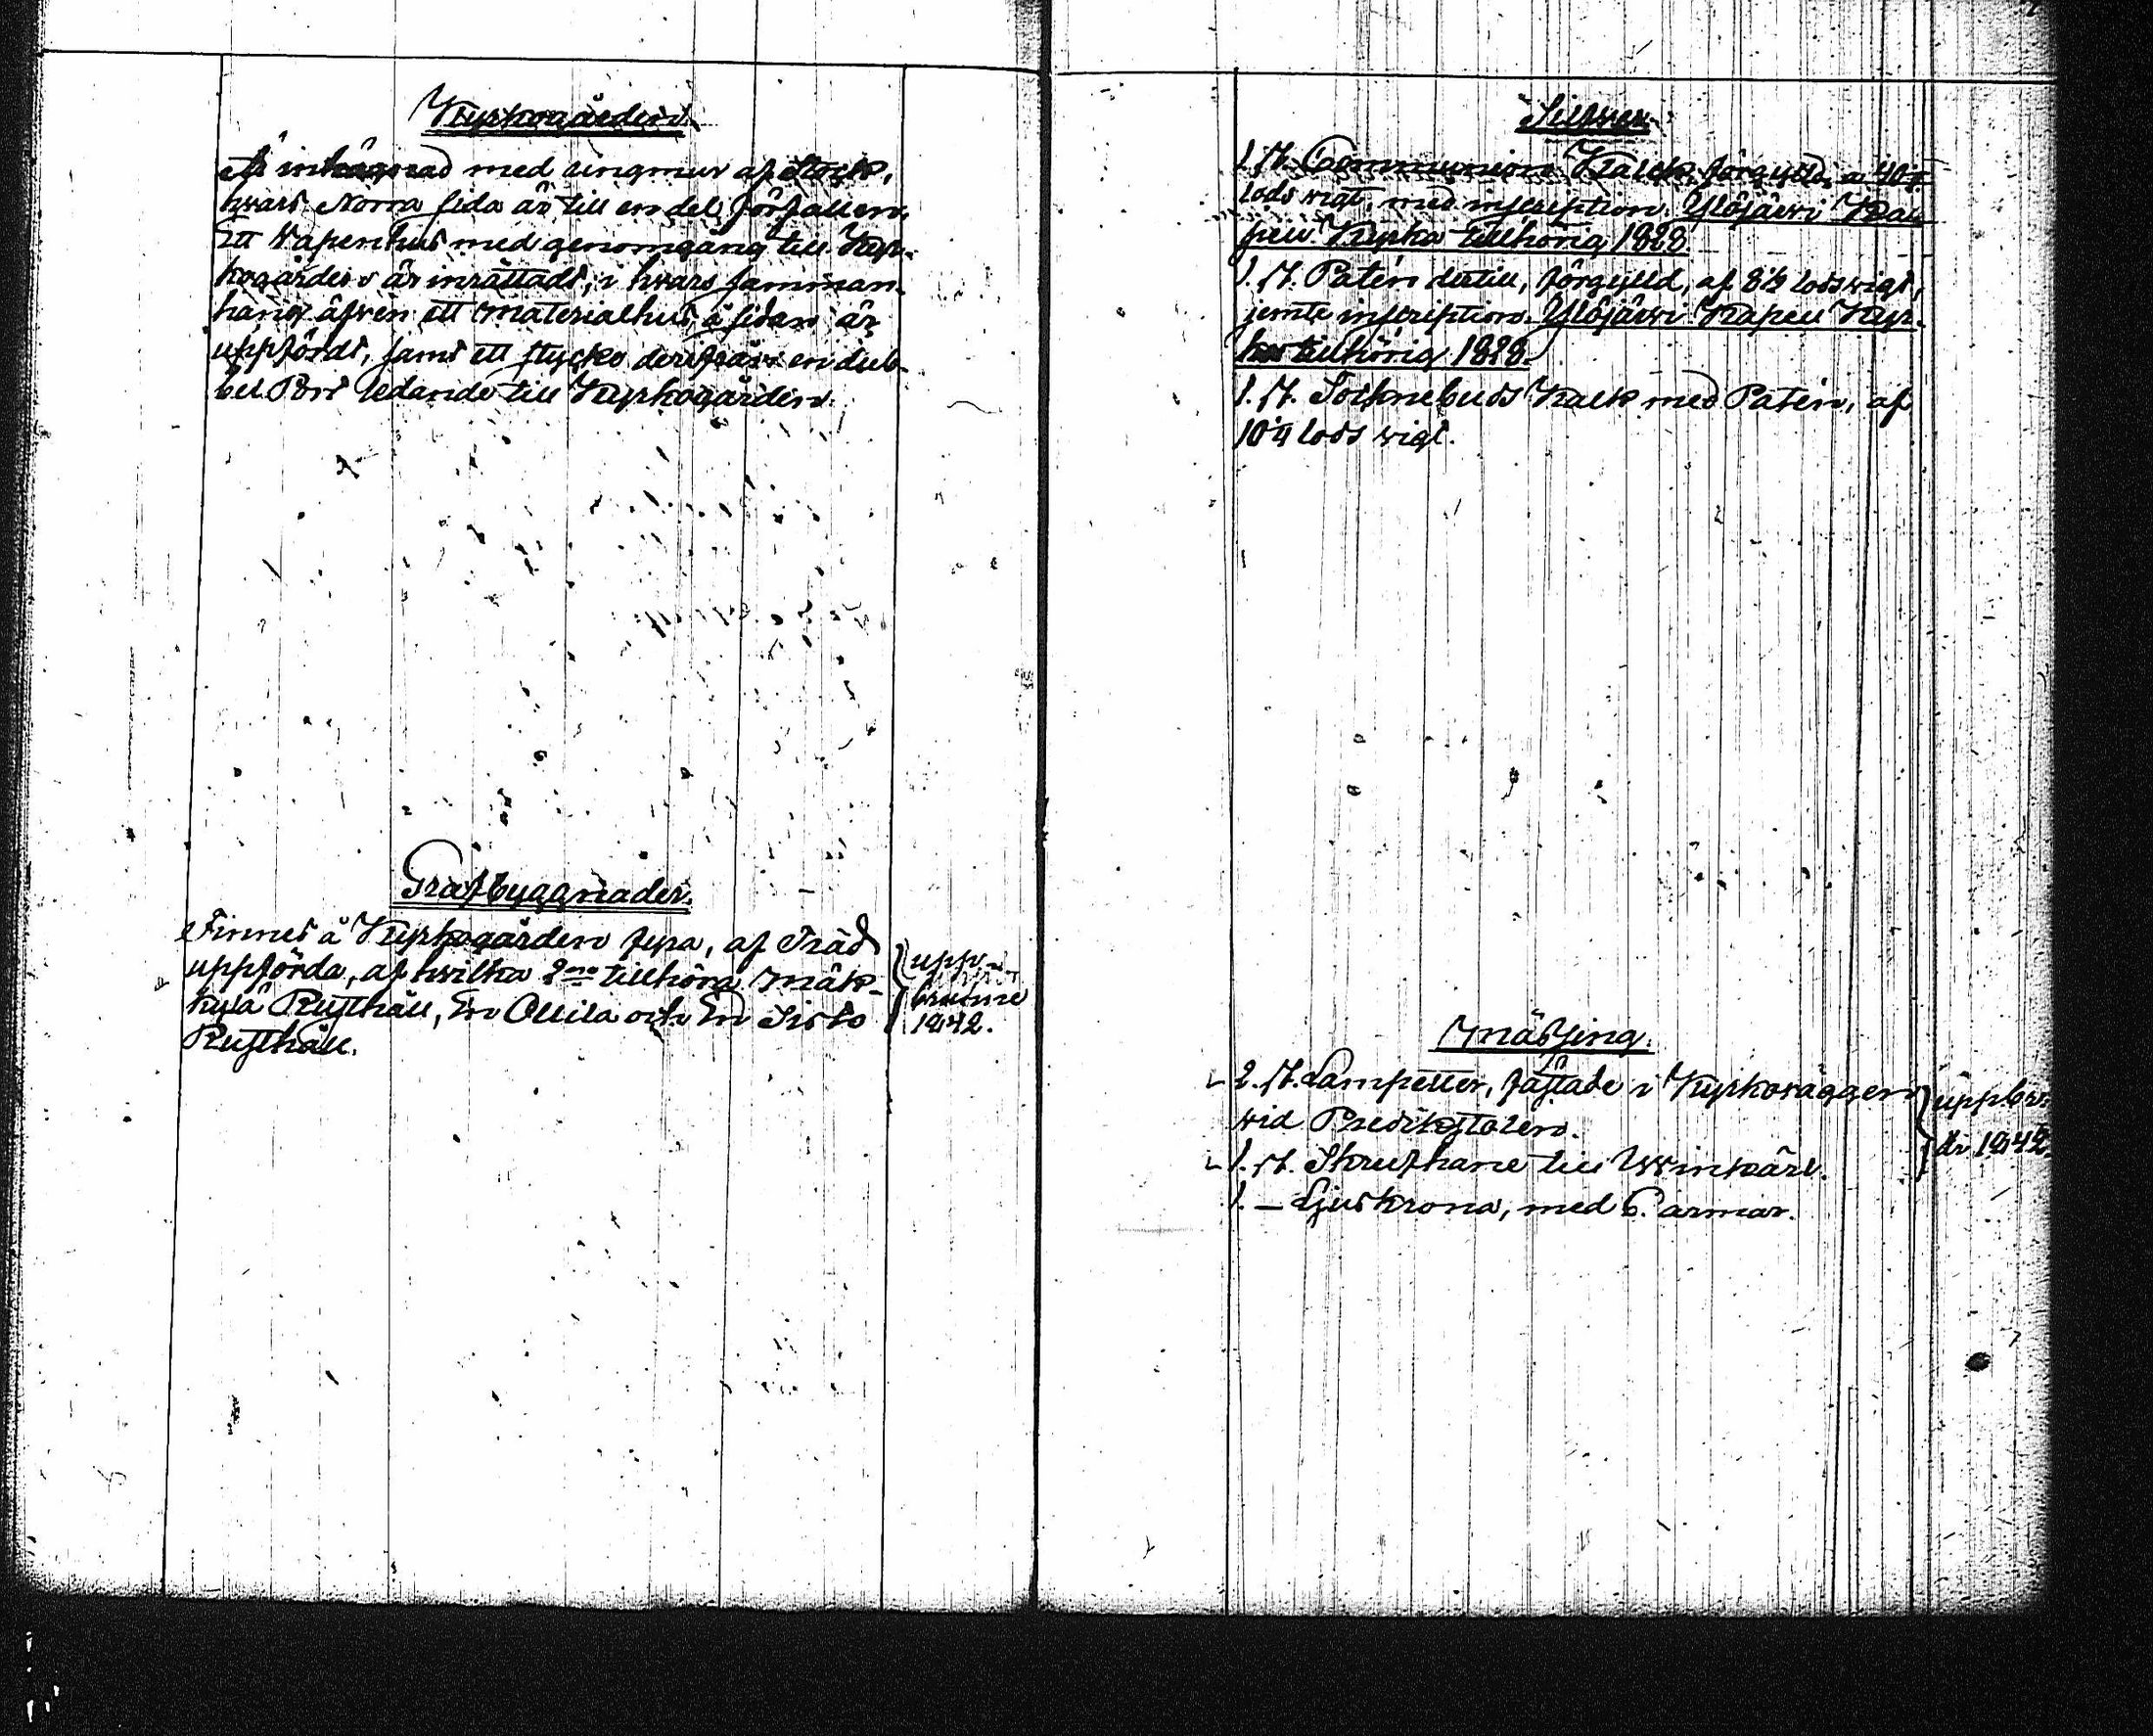 Kyrkogården.
Är inhägnad med ringmur af Stock,
hvars Norra sida är till en del förfallen.
Ett Wapenhus med genomgång till Kyr-
kogården är inrättadt, i hvars samman-
hang äfven ett Materialhus å sidan är
uppfördt, samt ett stycke derifrån en dub-
bel Port ledande till Kyrkogården.
Grafbyggnader.
Finnes å Kyrkogården fyra, af Träd
uppförda, af hvilka 2ne tillhöra Mäk-
kylä Rusthåll, En Ollila och En Sisto
Rusthåll.
upp-
brunne
1842.
Silfver.
1. st. Communion Kalck, förgylld, a
lods wigt, med inscription. Ylöjärvi Kap
pell Kyrka tillhörig 1828
1. st. Patén dertill, förgylld, af 8½ lods wigt,
jemte inscription. Ylöjärvi Kapell Kyr-
ka tillhörig 1828.
1. st. Socknebuds Kalk med Patén, af
10¼ lods wigt.
Mässing.
2. st. Lampetter, fästade i Kyrkoväggen
wid Predikstolen.
1. st. Skrufkane till Winkärl.
1. — Ljuskrona, med 6. armar.
uppbrun
1842.